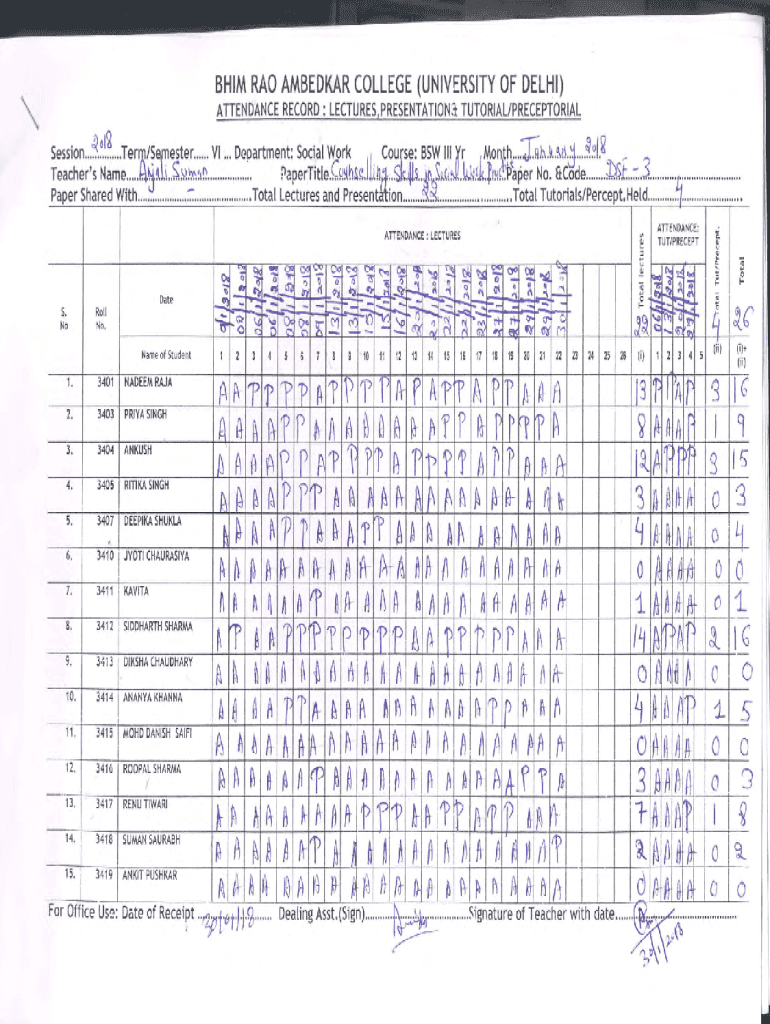 BHIM RAO AMBEDKAR COLLEGE (UNIVERSITY OF DELHI)
ATTENDANCE RECORD : LECTURES,PRESENTATION& TUTORIAL/PRECEPTORIAL
Session 2018 Term/Semester...... VI .. Department: Social Work Course: BSW III Yr Month January 2018
Teacher's Name Anjali Suman PaperTitle Counselling Skills in Social Work Paper No. &Code DSE-3
Paper Shared With - Total Lectures and Presentation 22 Total Tutorials/Percept.Held 4
ATTENDANCE : LECTURES Total lectures ATTENDANCE: TUT/PRECEPT Total Tut/Precept. Total
S. No Roll No. Date 22 4 26
Name of Student 1 2 3 4 5 6 7 8 9 10 11 12 13 14 15 16 17 18 19 20 21 22 23 24 25 26 (i) 1 2 3 4 5 (ii) (i)+ (ii)
1. 3401 NADEEM RAJA A A P P P P A P P P P A P A P P A P P A A A 13 P P A P 3 16
2. 3403 PRIYA SINGH A A A A P P A A A A A A A A P P A P P P P A 8 A A A P 1 9
3. 3404 ANKUSH A A A A P P A P P P P A P P P P A P P A A A 12 A P P P 3 15
4. 3405 RITIKA SINGH A A A A P P P A A A A A A A A A A A A A A A 3 A A A A 0 3
5. 3407 DEEPIKA SHUKLA A A A A P P A A A P P A A A A A A A A A A A 4 A A A A 0 4
6. 3410 JYOTI CHAURASIYA A A A A A A A A A A A A A A A A A A A A A A 0 A A A A 0 0
7. 3411 KAVITA A A A A A A P A A A A A A A A A A A A A A A 1 A A A A 0 1
8. 3412 SIDDHARTH SHARMA A P A A P P P P P P P P A A P P P P P A A A 14 A P A P 2 16
9. 3413 DIKSHA CHAUDHARY A A A A A A A A A A A A A A A A A A A A A A 0 A A A A 0 0
10. 3414 ANANYA KHANNA A A A A P P A A A A A A A A A A A P P A A A 4 A A A P 1 5
11. 3415 MOHD DANISH SAIFI A A A A A A A A A A A A A A A A A A A A A A 0 A A A A 0 0
12. 3416 ROOPAL SHARMA A A A A A A P A A A A A A A A A A A A P P A 3 A A A A 0 3
13. 3417 RENU TIWARI A A A A A A A A A P P P A A P P A P P A A A 7 A A A P 1 8
14. 3418 SUMAN SAURABH A A A A A A P A A A A A A A A A A A A A A P 2 A A A A 0 2
15. 3419 ANKIT PUSHKAR A A A A A A A A A A A A A A A A A A A A A A 0 A A A A 0 0
For Office Use: Date of Receipt 30/01/18 Dealing Asst.(Sign) Signature of Teacher with date
30/1/2018